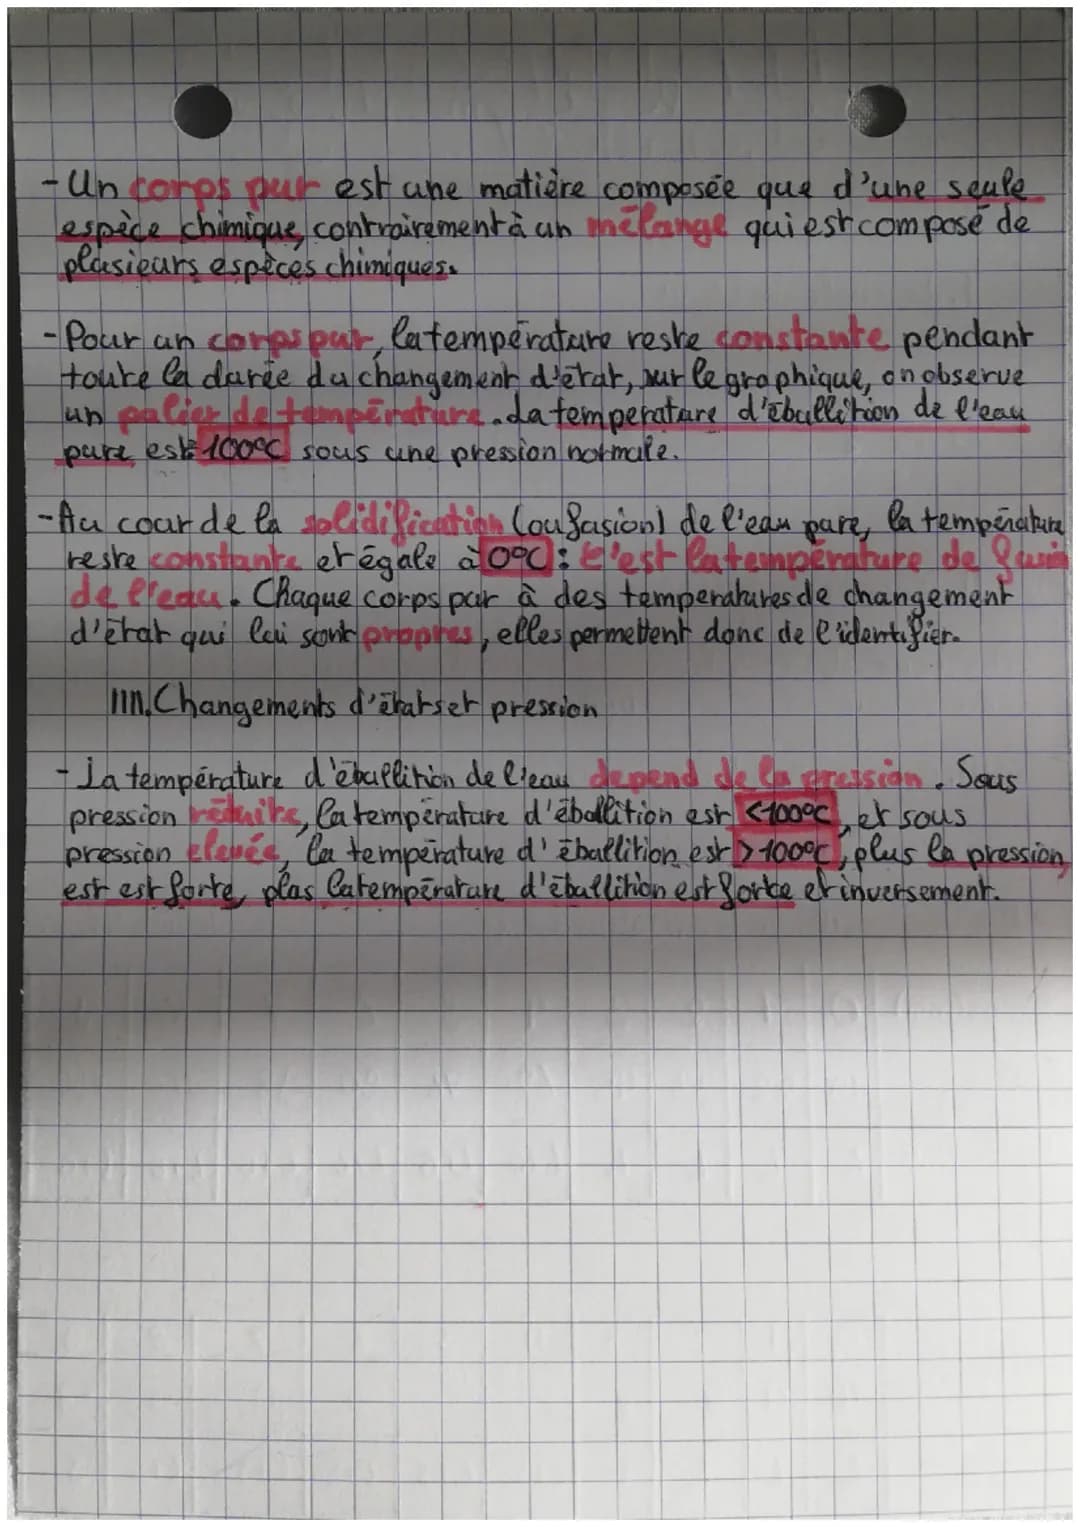 - Un corps pur est une matière composée que d'une seule
espèce chimique, contrairement à un mélange qui est composé de
plusieurs espèces chimiques.
- Pour un corps pur, la température reste constante pendant
toute la durée du changement d'état, sur le graphique, on observe
un palier de température. La temperature d'ébullition de l'eau
pure est 100°C sous une pression normale.
- Au cour de la solidification (ou fusion) de l'eau pure, la température
reste constante et égale à 0°C : c'est la température de fusion
de l'eau. Chaque corps pur à des temperatures de changement
d'état qui lui sont propres, elles permettent donc de l'identifier.
III. Changements d'états et pression
- La température d'ébullition de l'eau depend de la pression. Sous
pression réduite, la température d'ébollition est <100°C, et sous
pression elevée, la température d'ébullition est >100°C, plus la pression
est est forte, plus la température d'ébullition est forte et inversement.